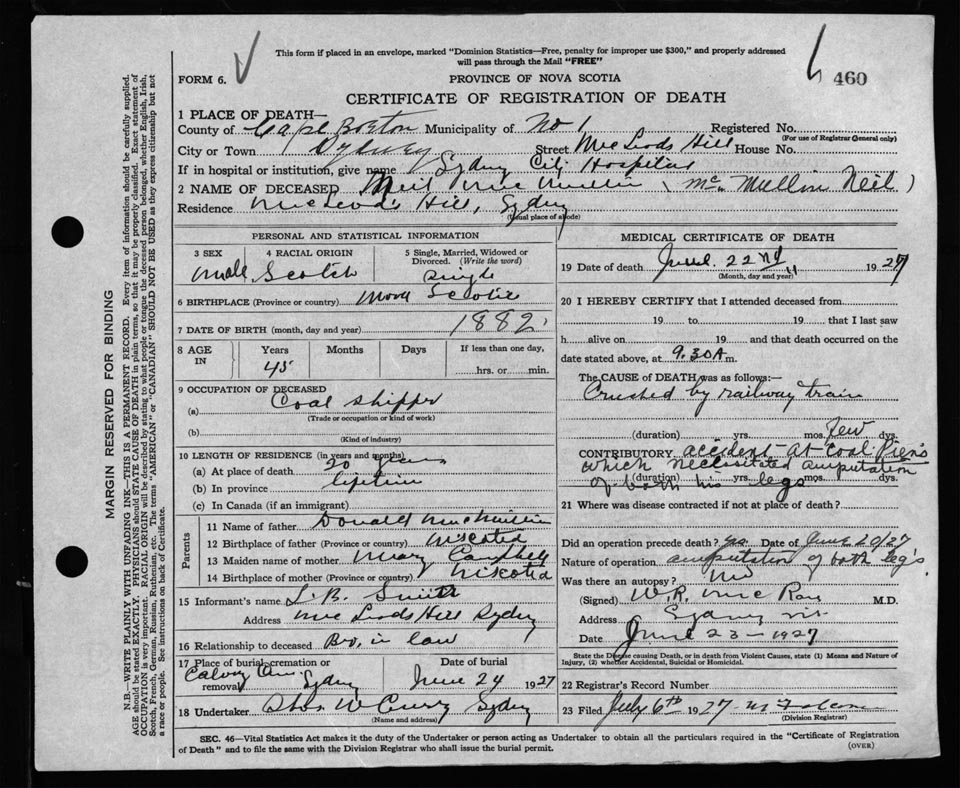 This form if placed in an envelope, marked "Dominion Statistics—Free, penalty for improper use $300," and properly addressed
will pass through the Mail "FREE"
FORM 6.
PROVINCE OF NOVA SCOTIA
460
CERTIFICATE OF REGISTRATION OF DEATH
1 PLACE OF DEATH—
County of Cape Breton Municipality of No 1 Registered No.
(For use of Registrar General only)
City or Town Sydney Street MacLeods Hill House No.
If in hospital or institution, give name Sydney City Hospital
2 NAME OF DECEASED Neil MacMullin (McMullin Neil)
Residence MacLeods Hill, Sydney
(Usual place of abode)
PERSONAL AND STATISTICAL INFORMATION
3 SEX Male
4 RACIAL ORIGIN Scotch
5 Single, Married, Widowed or Divorced. (Write the word) Single
6 BIRTHPLACE (Province or country) Nova Scotia
7 DATE OF BIRTH (month, day and year) 1882
8 AGE IN Years 45 Months Days If less than one day, hrs. or min.
9 OCCUPATION OF DECEASED
(a) Coal Shipper
(Trade or occupation or kind of work)
(b)
(Kind of industry)
10 LENGTH OF RESIDENCE (in years and months)
(a) At place of death 20 years
(b) In province lifetime
(c) In Canada (if an immigrant)
Parents
11 Name of father Donald MacMullin
12 Birthplace of father (Province or country) N Scotia
13 Maiden name of mother Mary Campbell
14 Birthplace of mother (Province or country) N Scotia
15 Informant's name J.B. Smith
Address MacLeods Hill Sydney
16 Relationship to deceased Bro. in law
17 Place of burial, cremation or removal Sydney
Date of burial June 24 1927
18 Undertaker Sydney
(Name and address)
MEDICAL CERTIFICATE OF DEATH
19 Date of death June 22nd 1927
(Month, day and year)
20 I HEREBY CERTIFY that I attended deceased from
19 to 19 that I last saw
h alive on 19 and that death occurred on the
date stated above, at 9.30 A m.
The CAUSE OF DEATH was as follows:—
Crushed by railway train
(duration) yrs. mos. Few dys.
CONTRIBUTORY accident at Coal Piers
which necessitated amputation
of both his legs
(duration) yrs. mos. dys.
21 Where was disease contracted if not at place of death?
Did an operation precede death? yes Date of June 20/27
Nature of operation amputation of both legs.
Was there an autopsy? No
(Signed) W.R. MacRae M.D.
Address Sydney N.S.
Date June 23-1927
State the Disease causing Death, or in death from Violent Causes, state (1) Means and Nature of
Injury, (2) whether Accidental, Suicidal or Homicidal.
22 Registrar's Record Number
23 Filed July 6th 1927
(Division Registrar)
SEC. 46—Vital Statistics Act makes it the duty of the Undertaker or person acting as Undertaker to obtain all the particulars required in the "Certificate of Registration
of Death" and to file the same with the Division Registrar who shall issue the burial permit.
(OVER)
MARGIN RESERVED FOR BINDING
N.B.—WRITE PLAINLY WITH UNFADING INK—THIS IS A PERMANENT RECORD. Every item of information should be carefully supplied.
AGE should be stated EXACTLY. PHYSICIANS should STATE CAUSE OF DEATH in plain terms, so that it may be properly classified. Exact statement of
OCCUPATION is very important. RACIAL ORIGIN will be described by stating to what people or tongue the deceased person belonged, whether English, Irish,
Scotch, French, German, Russian, Ruthenian, etc. The terms "AMERICAN" or "CANADIAN" SHOULD NOT BE USED as they express citizenship but not
a race or people. See instructions on back of Certificate.